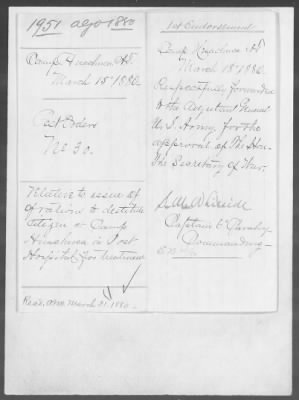 1951 ago 1880
Camp Huachuca A.T.
March 15" 1880.
Post Orders
No 30.
Relative to issue
of rations to destitute
citizen at Camp
Huachuca in Post
Hospital for treatment
Rec'd. March 31. 1880.
1st Endorsement
Camp Huachuca A.T.
March 15" 1880.
Respectfully forwarded
to the Adjutant General
U.S. Army, for the
approval of the Hon.
the Secretary of War.
Captain 6" Cavalry
Commanding